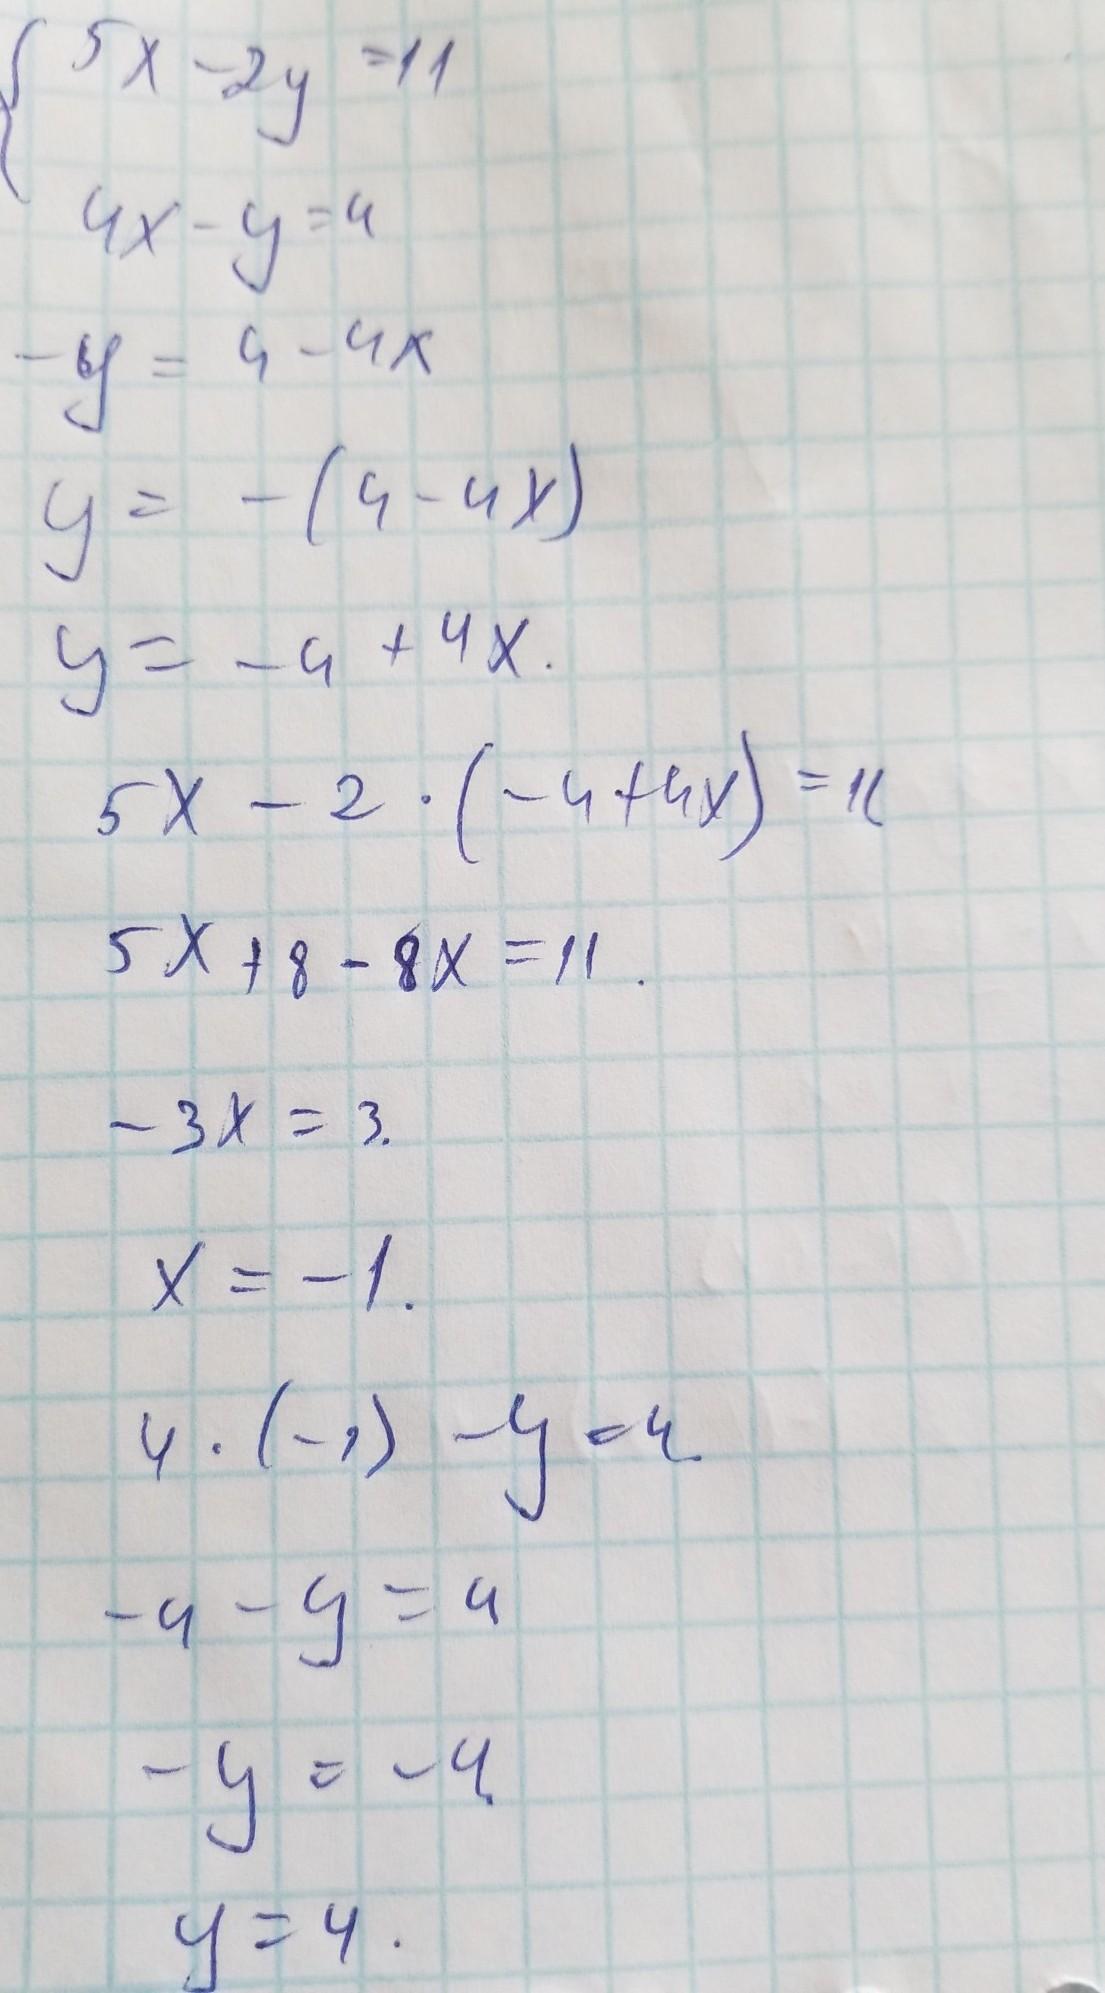 { 5x - 2y = 11
4x - y = 4
-y = 4 - 4x
y = -(4 - 4x)
y = -4 + 4x.
5x - 2 · (-4 + 4x) = 11
5x + 8 - 8x = 11.
-3x = 3.
x = -1.
4 · (-1) - y = 4
-4 - y = 4
-y = -4.
y = 4.